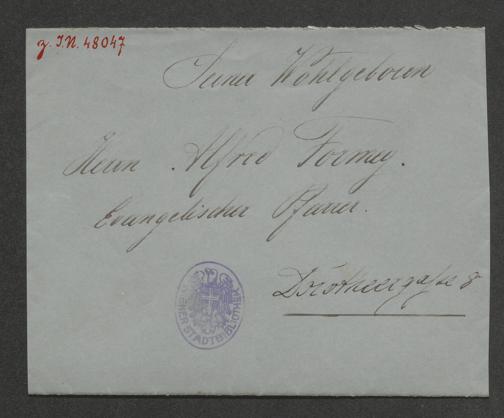 z. I.N. 48047
Seiner Wohlgeboren
Herrn Alfred Formey.
Evangelischer Pfarrer.
Dorotheergasse 8
WIENER STADTBIBLIOTHEK